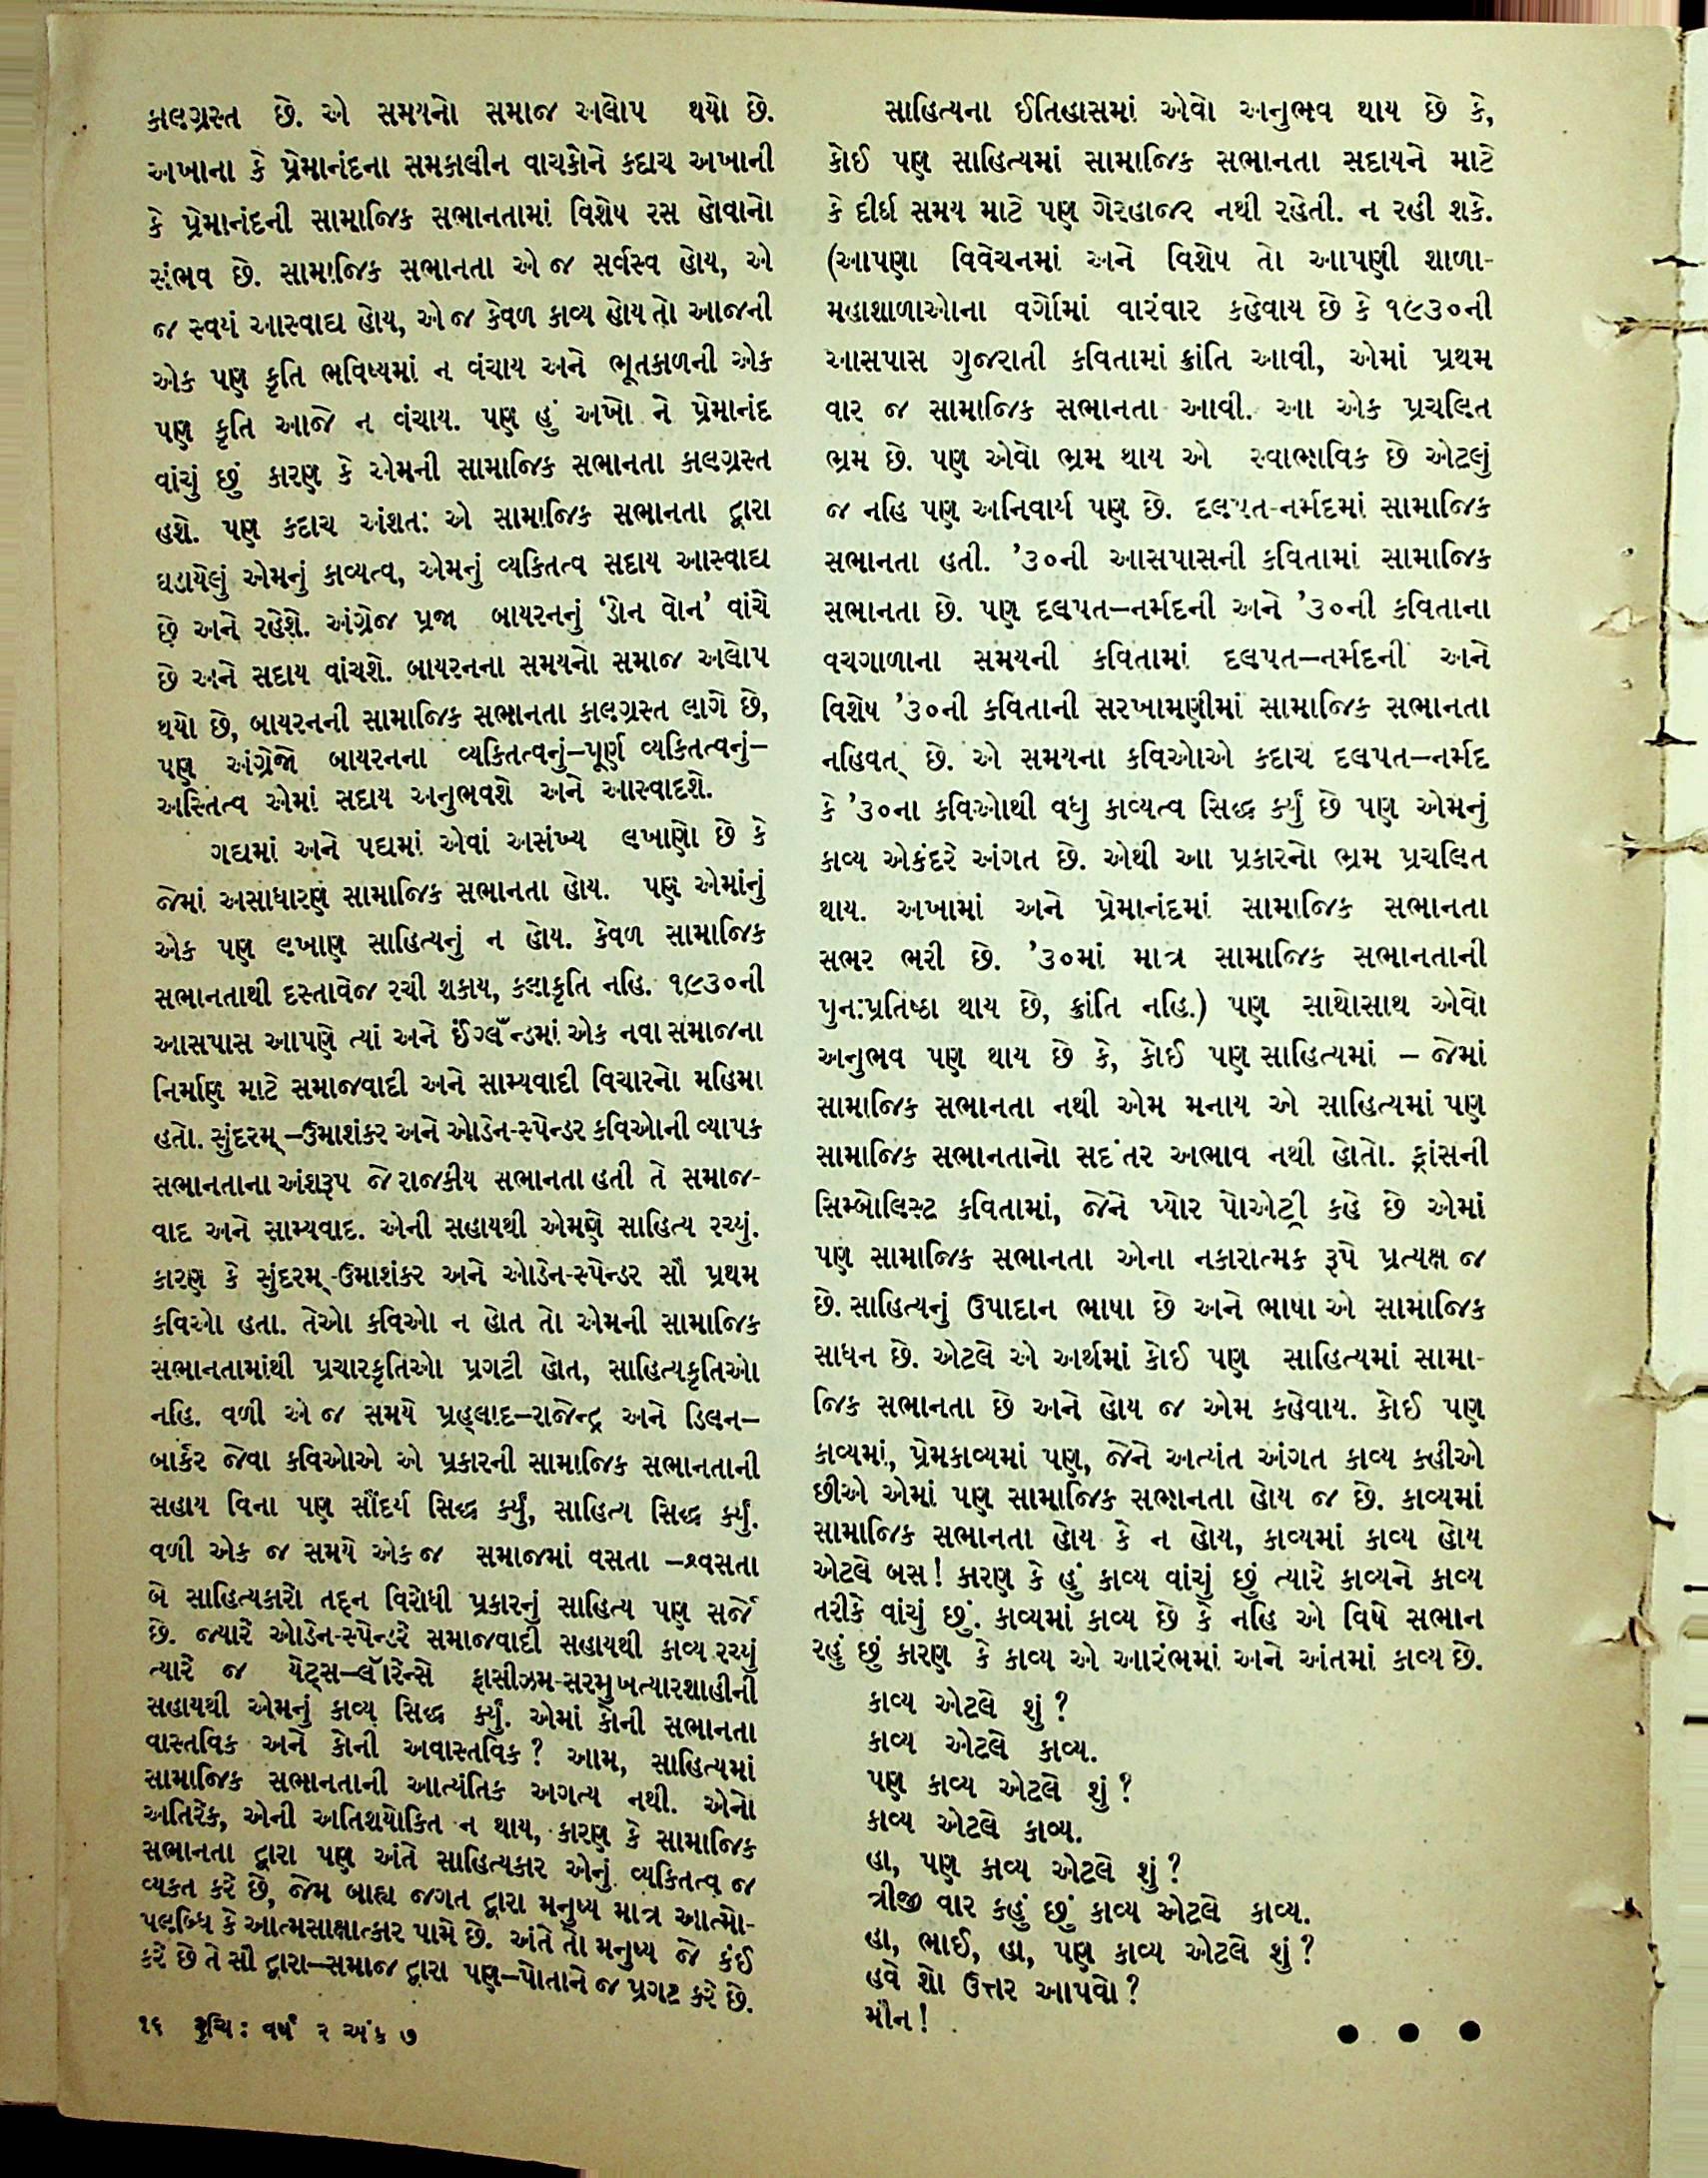 કાલગ્રસ્ત છે. એ સમયનો સમાજ અલોપ થયો છે.
અખાના કે પ્રેમાનંદના સમકાલીન વાચકોને કદાચ અખાની
કે પ્રેમાનંદની સામાજિક સભાનતામાં વિશેષ રસ હોવાનો
સંભવ છે. સામાજિક સભાનતા એ જ સર્વસ્વ હોય, એ
જ સ્વયં આસ્વાદ્ય હોય, એ જ કેવળ કાવ્ય હોય તો આજની
એક પણ કૃતિ ભવિષ્યમાં ન વંચાય અને ભૂતકાળની એક
પણ કૃતિ આજે ન વંચાય. પણ હું અખો ને પ્રેમાનંદ
વાંચું છું કારણ કે એમની સામાજિક સભાનતા કાલગ્રસ્ત
હશે. પણ કદાચ અંશત: એ સામાજિક સભાનતા દ્વારા
ઘડાયેલું એમનું કાવ્યત્વ, એમનું વ્યકિતત્વ સદાય આસ્વાદ્ય
છે અને રહેશે. અંગ્રેજ પ્રજા બાયરનનું ‘ડોન વોન’ વાંચે
છે અને સદાય વાંચશે. બાયરનના સમયનો સમાજ અલોપ
થયો છે, બાયરનની સામાજિક સભાનતા કાલગ્રસ્ત લાગે છે,
પણ અંગ્રેજો બાયરનના વ્યકિતત્વનું–પૂર્ણ વ્યકિતત્વનું–
અસ્તિત્વ એમાં સદાય અનુભવશે અને આસ્વાદશે.
ગદ્યમાં અને પદ્યમાં એવાં અસંખ્ય લખાણો છે કે
જેમાં અસાધારણ સામાજિક સભાનતા હોય. પણ એમાંનું
એક પણ લખાણ સાહિત્યનું ન હોય. કેવળ સામાજિક
સભાનતાથી દસ્તાવેજ રચી શકાય, કલાકૃતિ નહિ. ૧૯૩૦ની
આસપાસ આપણે ત્યાં અને ઈંગ્લૅન્ડમાં એક નવા સમાજના
નિર્માણ માટે સમાજવાદી અને સામ્યવાદી વિચારનો મહિમા
હતો. સુંદરમ્–ઉમાશંકર અને ઓડેન-સ્પેન્ડર કવિઓની વ્યાપક
સભાનતાના અંશરૂપ જે રાજકીય સભાનતા હતી તે સમાજ-
વાદ અને સામ્યવાદ. એની સહાયથી એમણે સાહિત્ય રચ્યું.
કારણ કે સુંદરમ્-ઉમાશંકર અને ઓડેન-સ્પેન્ડર સૌ પ્રથમ
કવિઓ હતા. તેઓ કવિઓ ન હોત તો એમની સામાજિક
સભાનતામાંથી પ્રચારકૃતિઓ પ્રગટી હોત, સાહિત્યકૃતિઓ
નહિ. વળી એ જ સમયે પ્રહ્લાદ–રાજેન્દ્ર અને ડિલન–
બાર્કર જેવા કવિઓએ એ પ્રકારની સામાજિક સભાનતાની
સહાય વિના પણ સૌંદર્ય સિદ્ધ કર્યું, સાહિત્ય સિદ્ધ કર્યું.
વળી એક જ સમયે એક જ સમાજમાં વસતા –શ્વસતા
બે સાહિત્યકારો તદ્દન વિરોધી પ્રકારનું સાહિત્ય પણ સર્જે
છે. જ્યારે ઓડેન-સ્પેન્ડરે સમાજવાદી સહાયથી કાવ્ય રચ્યું
ત્યારે જ યેટ્સ–લૉરેન્સે ફાસીઝમ-સરમુખત્યારશાહીની
સહાયથી એમનું કાવ્ય સિદ્ધ કર્યું. એમાં કોની સભાનતા
વાસ્તવિક અને કોની અવાસ્તવિક? આમ, સાહિત્યમાં
સામાજિક સભાનતાની આત્યંતિક અગત્ય નથી. એનો
અતિરેક, એની અતિશયોકિત ન થાય, કારણ કે સામાજિક
સભાનતા દ્વારા પણ અંતે સાહિત્યકાર એનું વ્યકિતત્વ જ
વ્યકત કરે છે, જેમ બાહ્ય જગત દ્વારા મનુષ્ય માત્ર આત્મો-
પલબ્ધિ કે આત્મસાક્ષાત્કાર પામે છે. અંતે તો મનુષ્ય જે કંઈ
કરે છે તે સૌ દ્વારા–સમાજ દ્વારા પણ–પોતાને જ પ્રગટ કરે છે.
૧૬ રુચિ: વર્ષ ૨ અંક ૭
સાહિત્યના ઈતિહાસમાં એવો અનુભવ થાય છે કે,
કોઈ પણ સાહિત્યમાં સામાજિક સભાનતા સદાયને માટે
કે દીર્ઘ સમય માટે પણ ગેરહાજર નથી રહેતી. ન રહી શકે.
(આપણા વિવેચનમાં અને વિશેષ તો આપણી શાળા-
મહાશાળાઓના વર્ગોમાં વારંવાર કહેવાય છે કે ૧૯૩૦ની
આસપાસ ગુજરાતી કવિતામાં ક્રાંતિ આવી, એમાં પ્રથમ
વાર જ સામાજિક સભાનતા આવી. આ એક પ્રચલિત
ભ્રમ છે. પણ એવો ભ્રમ થાય એ સ્વાભાવિક છે એટલું
જ નહિ પણ અનિવાર્ય પણ છે. દલપત-નર્મદમાં સામાજિક
સભાનતા હતી. ’૩૦ની આસપાસની કવિતામાં સામાજિક
સભાનતા છે. પણ દલપત–નર્મદની અને ’૩૦ની કવિતાના
વચગાળાના સમયની કવિતામાં દલપત–નર્મદની અને
વિશેષ ’૩૦ની કવિતાની સરખામણીમાં સામાજિક સભાનતા
નહિવત્ છે. એ સમયના કવિઓએ કદાચ દલપત–નર્મદ
કે ’૩૦ના કવિઓથી વધુ કાવ્યત્વ સિદ્ધ કર્યું છે પણ એમનું
કાવ્ય એકંદરે અંગત છે. એથી આ પ્રકારનો ભ્રમ પ્રચલિત
થાય. અખામાં અને પ્રેમાનંદમાં સામાજિક સભાનતા
સભર ભરી છે. ’૩૦માં માત્ર સામાજિક સભાનતાની
પુન:પ્રતિષ્ઠા થાય છે, ક્રાંતિ નહિ.) પણ સાથોસાથ એવો
અનુભવ પણ થાય છે કે, કોઈ પણ સાહિત્યમાં – જેમાં
સામાજિક સભાનતા નથી એમ મનાય એ સાહિત્યમાં પણ
સામાજિક સભાનતાનો સદંતર અભાવ નથી હોતો. ફ્રાંસની
સિમ્બોલિસ્ટ કવિતામાં, જેને પ્યોર પોએટ્રી કહે છે એમાં
પણ સામાજિક સભાનતા એના નકારાત્મક રૂપે પ્રત્યક્ષ જ
છે. સાહિત્યનું ઉપાદાન ભાષા છે અને ભાષા એ સામાજિક
સાધન છે. એટલે એ અર્થમાં કોઈ પણ સાહિત્યમાં સામા-
જિક સભાનતા છે અને હોય જ એમ કહેવાય. કોઈ પણ
કાવ્યમાં, પ્રેમકાવ્યમાં પણ, જેને અત્યંત અંગત કાવ્ય કહીએ
છીએ એમાં પણ સામાજિક સભાનતા હોય જ છે. કાવ્યમાં
સામાજિક સભાનતા હોય કે ન હોય, કાવ્યમાં કાવ્ય હોય
એટલે બસ! કારણ કે હું કાવ્ય વાંચું છું ત્યારે કાવ્યને કાવ્ય
તરીકે વાંચું છું. કાવ્યમાં કાવ્ય છે કે નહિ એ વિષે સભાન
રહું છું કારણ કે કાવ્ય એ આરંભમાં અને અંતમાં કાવ્ય છે.
કાવ્ય એટલે શું?
કાવ્ય એટલે કાવ્ય.
પણ કાવ્ય એટલે શું?
કાવ્ય એટલે કાવ્ય.
હા, પણ કાવ્ય એટલે શું?
ત્રીજી વાર કહું છું કાવ્ય એટલે કાવ્ય.
હા, ભાઈ, હા, પણ કાવ્ય એટલે શું?
હવે શો ઉત્તર આપવો?
મૌન!